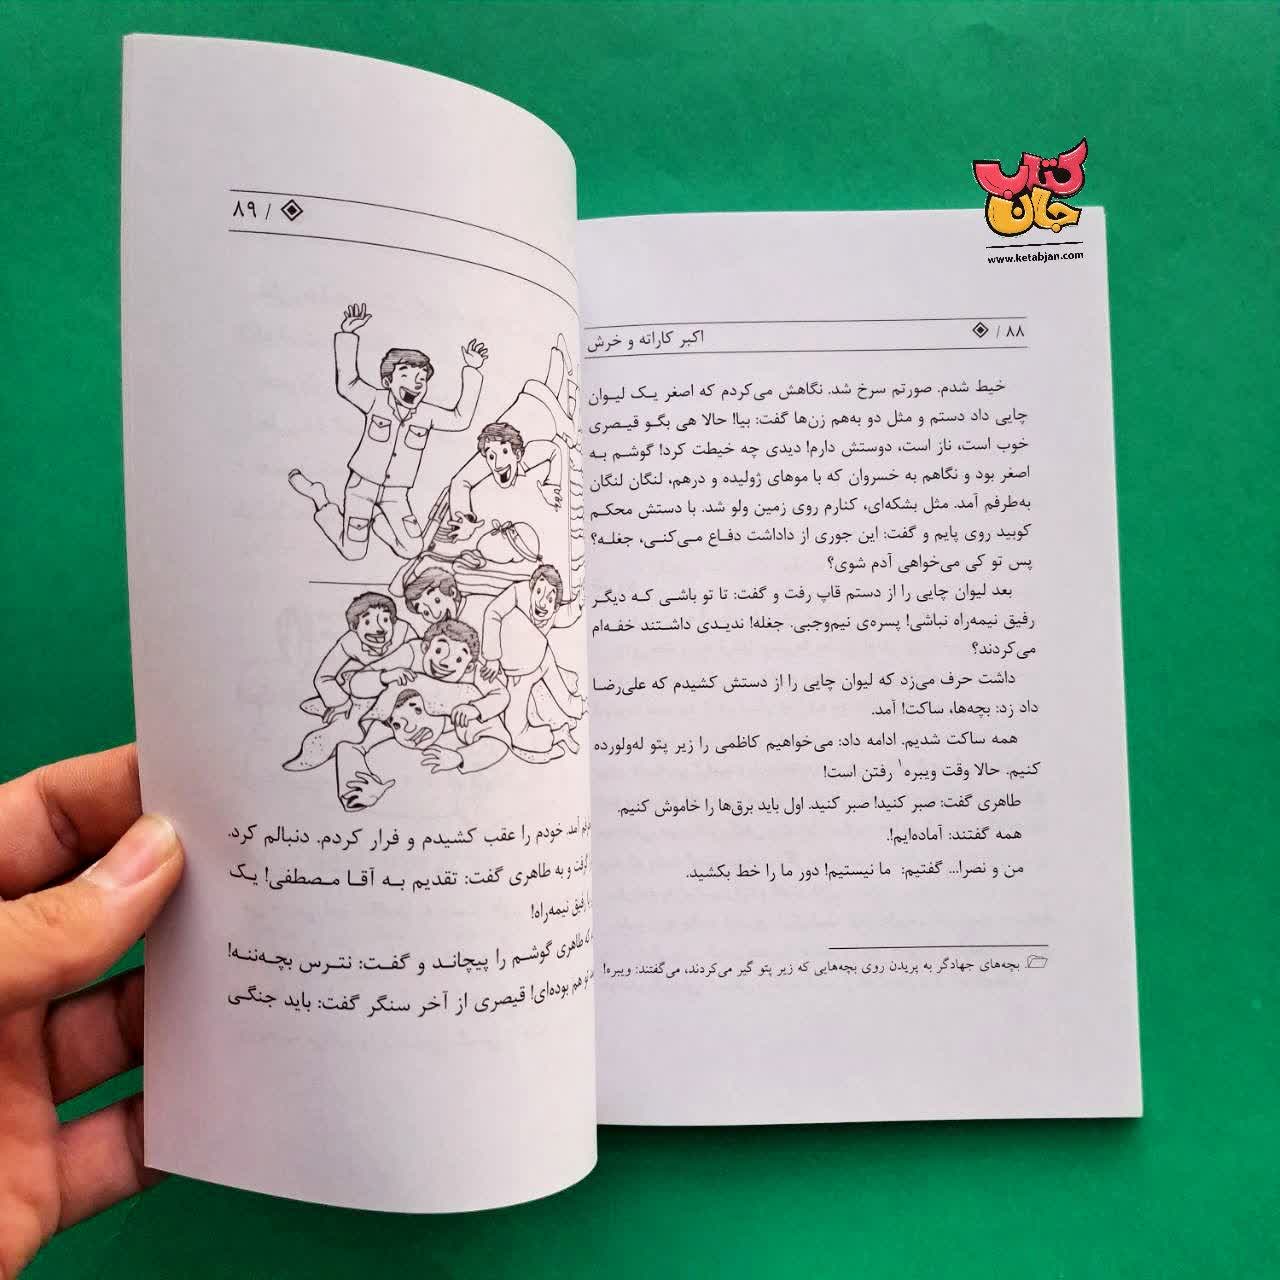 کتاب
جان
www.ketabjan.com
۸۸ /
اکبر کاراته و خرش
خیط شدم. صورتم سرخ شد. نگاهش می‌کردم که اصغر یک لیوان
چایی داد دستم و مثل دو به‌هم زن‌ها گفت: بیا! حالا هی بگو قیصری
خوب است، ناز است، دوستش دارم! دیدی چه خیطت کرد! گوشم به
اصغر بود و نگاهم به خسروان که با موهای ژولیده و درهم، لنگان لنگان
به‌طرفم آمد. مثل بشکه‌ای، کنارم روی زمین ولو شد. با دستش محکم
کوبید روی پایم و گفت: این جوری از داداشت دفاع می‌کنی، جغله؟
پس تو کی می‌خواهی آدم شوی؟
بعد لیوان چایی را از دستم قاپ رفت و گفت: تا تو باشی که دیگر
رفیق نیمه‌راه نباشی! پسره‌ی نیم‌وجبی. جغله! ندیدی داشتند خفه‌ام
می‌کردند؟
داشت حرف می‌زد که لیوان چایی را از دستش کشیدم که علی‌رضا
داد زد: بچه‌ها، ساکت! آمد.
همه ساکت شدیم. ادامه داد: می‌خواهیم کاظمی را زیر پتو له‌ولورده
کنیم. حالا وقت ویبره۱ رفتن است!
طاهری گفت: صبر کنید! صبر کنید. اول باید برق‌ها را خاموش کنیم.
همه گفتند: آماده‌ایم!.
من و نصرا... گفتیم: ما نیستیم! دور ما را خط بکشید.
بچه‌های جهادگر به پریدن روی بچه‌هایی که زیر پتو گیر می‌کردند، می‌گفتند: ویبره!
/ ۸۹
آمد. خودم را عقب کشیدم و فرار کردم. دنبالم کرد.
گرفت و به طاهری گفت: تقدیم به آقا مصطفی! یک
رفیق نیمه‌راه!
که طاهری گوشم را پیچاند و گفت: نترس بچه‌ننه!
تو هم بوده‌ای! قیصری از آخر سنگر گفت: باید جنگی